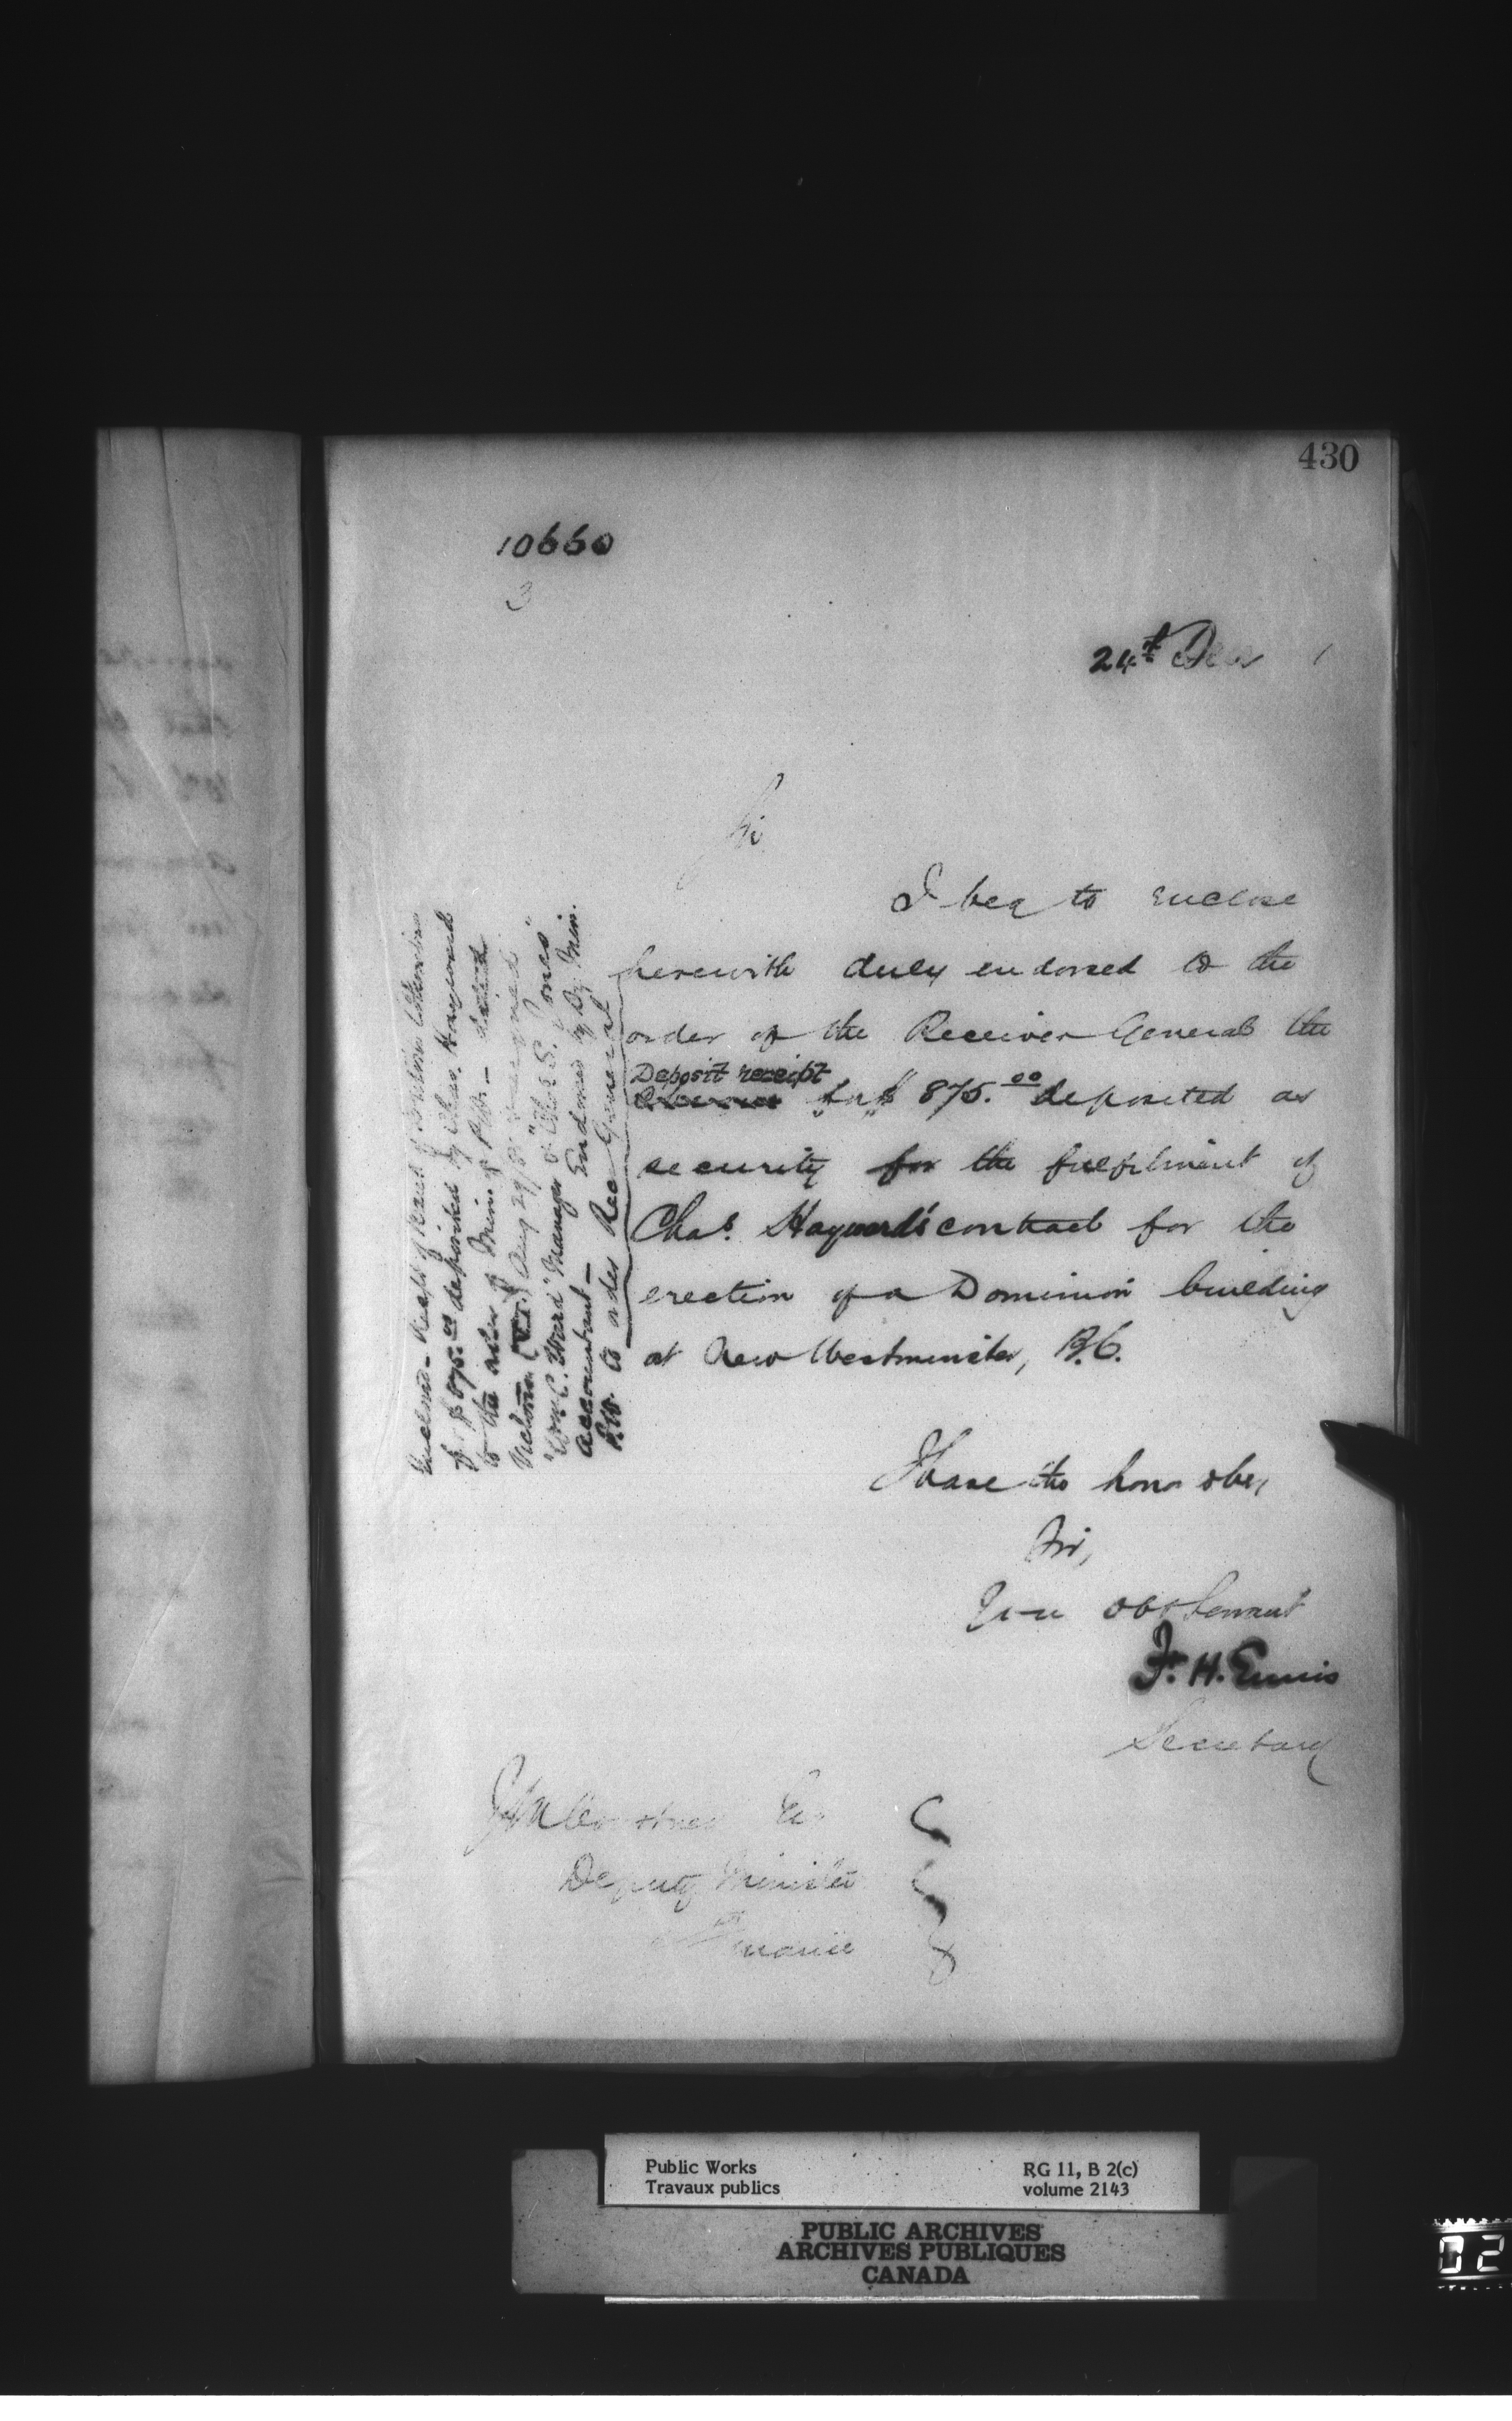 430
10660
3
24th Dec 1
Sir
I beg to enclose
herewith duly endorsed to the
order of the Receiver General the
Deposit receipt
for $ 875.00 deposited as
security for the fulfilment of
Chas. Hayward's contract for the
erection of a Dominion building
at New Westminster, B.C.
Enclosed - Receipt of Bank of British Columbia
for $875.00 deposited by Chas. Hayward
to the order of Min. of P.W. - dated
Victoria Aug 29/81 signed
"Wm. C. Ward" Manager & "Thos S. Jones"
accountant - Endorsed by Dy. Min.
P.W. to order Rec General
I have the honor to be,
Sir,
Your obt Servant
F. H. Ennis
Secretary
J M Courtney Esq
Deputy Minister
of Finance
Public Works
Travaux publics
RG 11, B 2(c)
volume 2143
PUBLIC ARCHIVES
ARCHIVES PUBLIQUES
CANADA
02